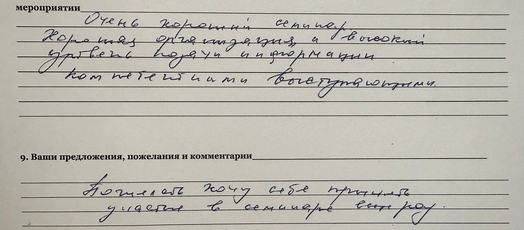 мероприятии
Очень хороший семинар
Хорошая организация и высокий
уровень подачи информации
компетентными выступающими.
9. Ваши предложения, пожелания и комментарии
Пожелать хочу себе принять
участие в семинаре еще раз.